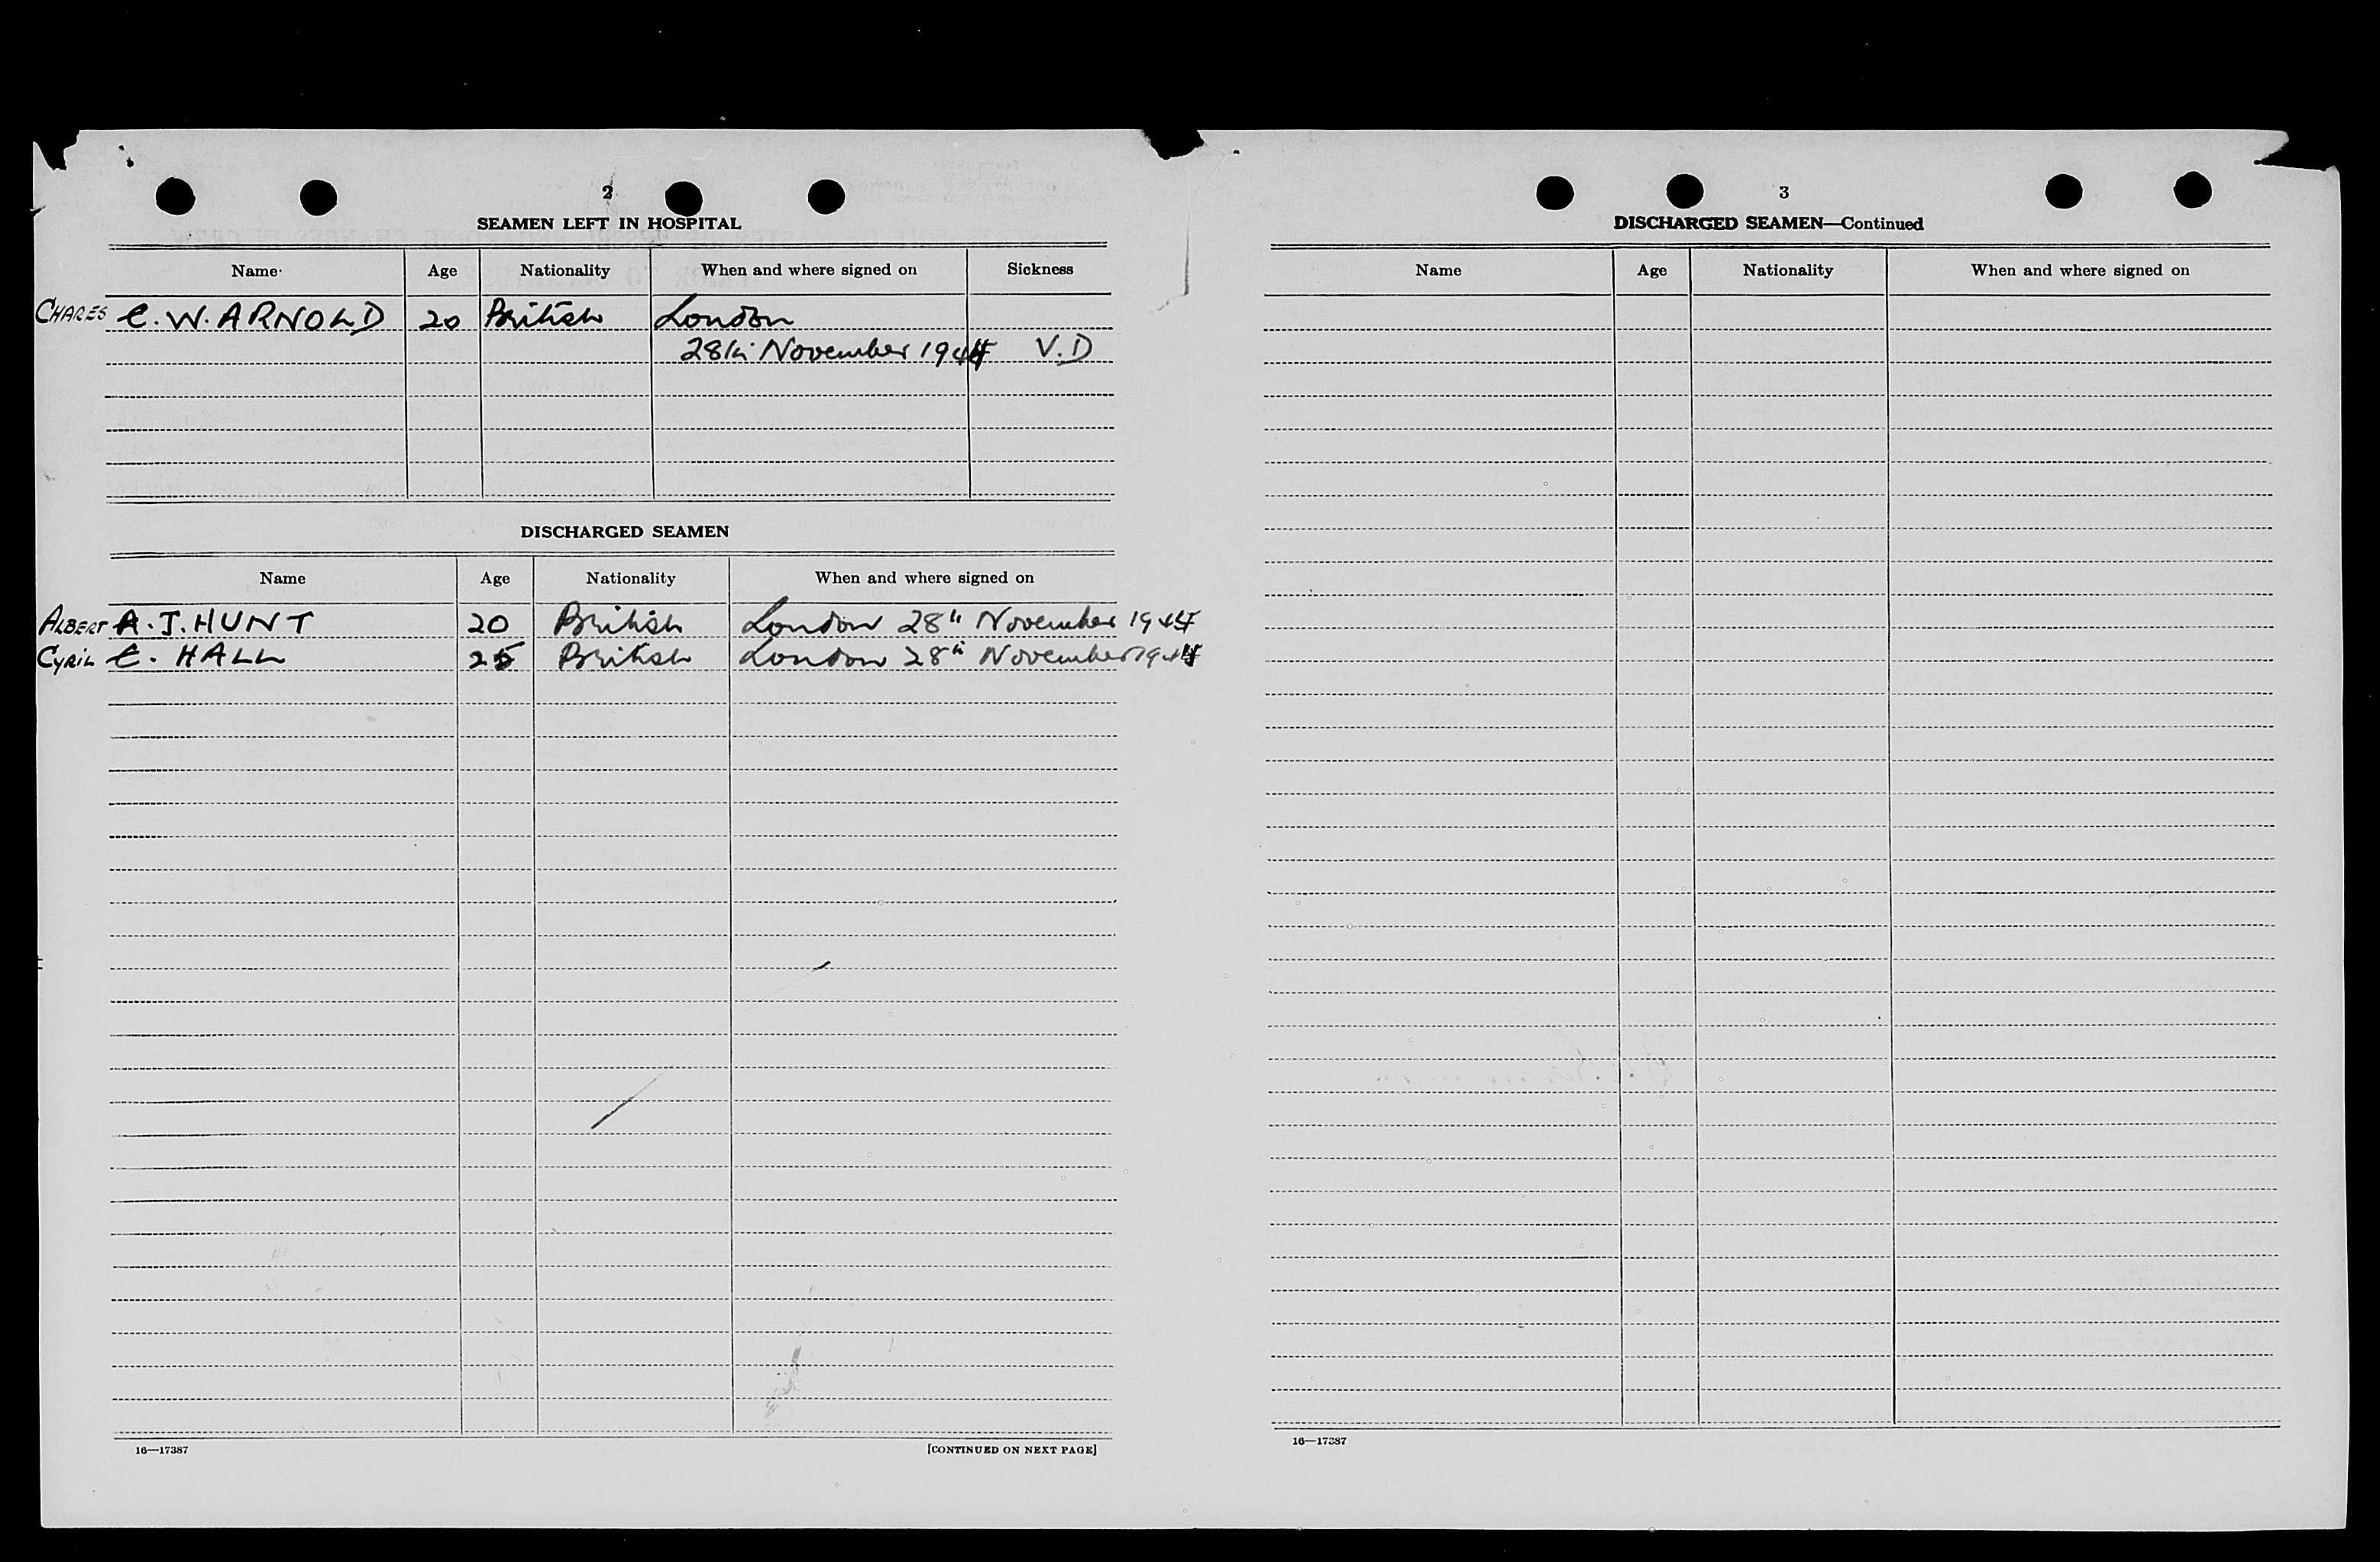 2
SEAMEN LEFT IN HOSPITAL
Name Age Nationality When and where signed on Sickness
CHARES C. W. ARNOLD 20 British London
28th November 1944 V.D
DISCHARGED SEAMEN
Name Age Nationality When and where signed on
ALBERT A. J. HUNT 20 British London 28th November 1944
CYRIL C. HALL 25 British London 28th November 1944
16—17387 [CONTINUED ON NEXT PAGE]
3
DISCHARGED SEAMEN—Continued
Name Age Nationality When and where signed on
16—17387